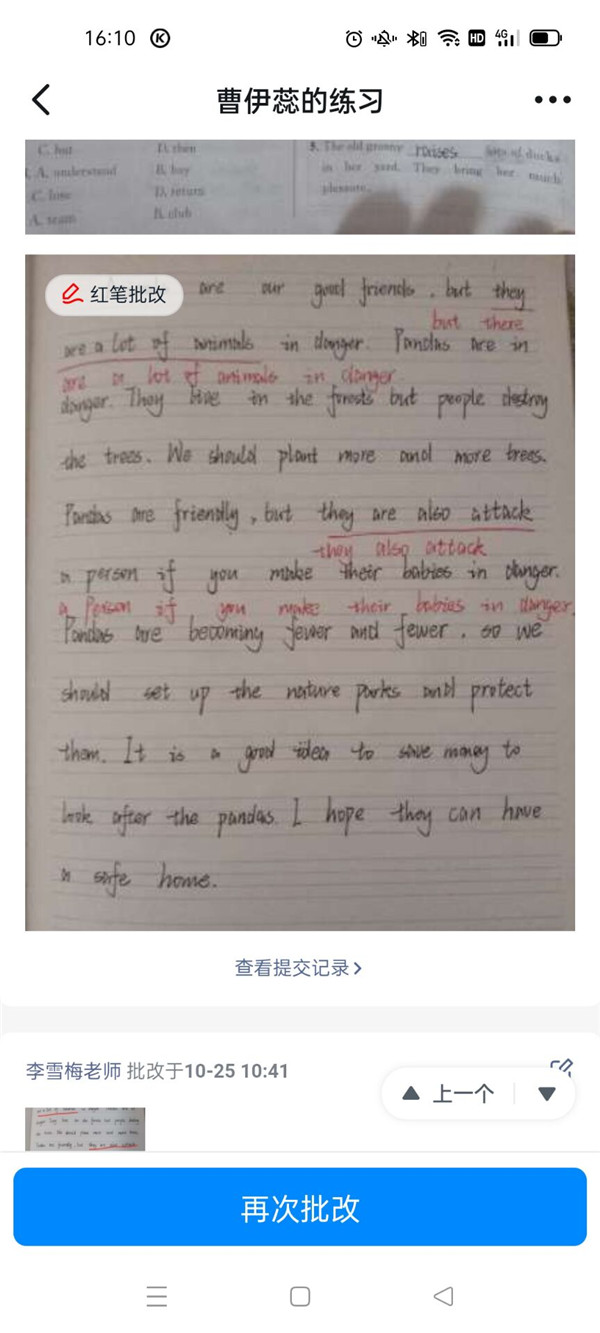 16:10
HD 4G
曹伊蕊的练习
C. but D. then
A. understand B. buy
C. lose D. return
A. team B. club
3. The old granny raises lots of ducks
in her yard. They bring her much
pleasure.
红笔批改
are our good friends, but they
but there
are a lot of animals in danger. Pandas are in
are a lot of animals in danger
danger. They live in the forests but people destroy
the trees. We should plant more and more trees.
Pandas are friendly, but they are also attack
they also attack
a person if you make their babies in danger.
a Person if you make their babies in danger.
Pandas are becoming fewer and fewer, so we
should set up the nature parks and protect
them. It is a good idea to save money to
look after the pandas. I hope they can have
a safe home.
查看提交记录
李雪梅老师 批改于10-25 10:41
上一个
再次批改